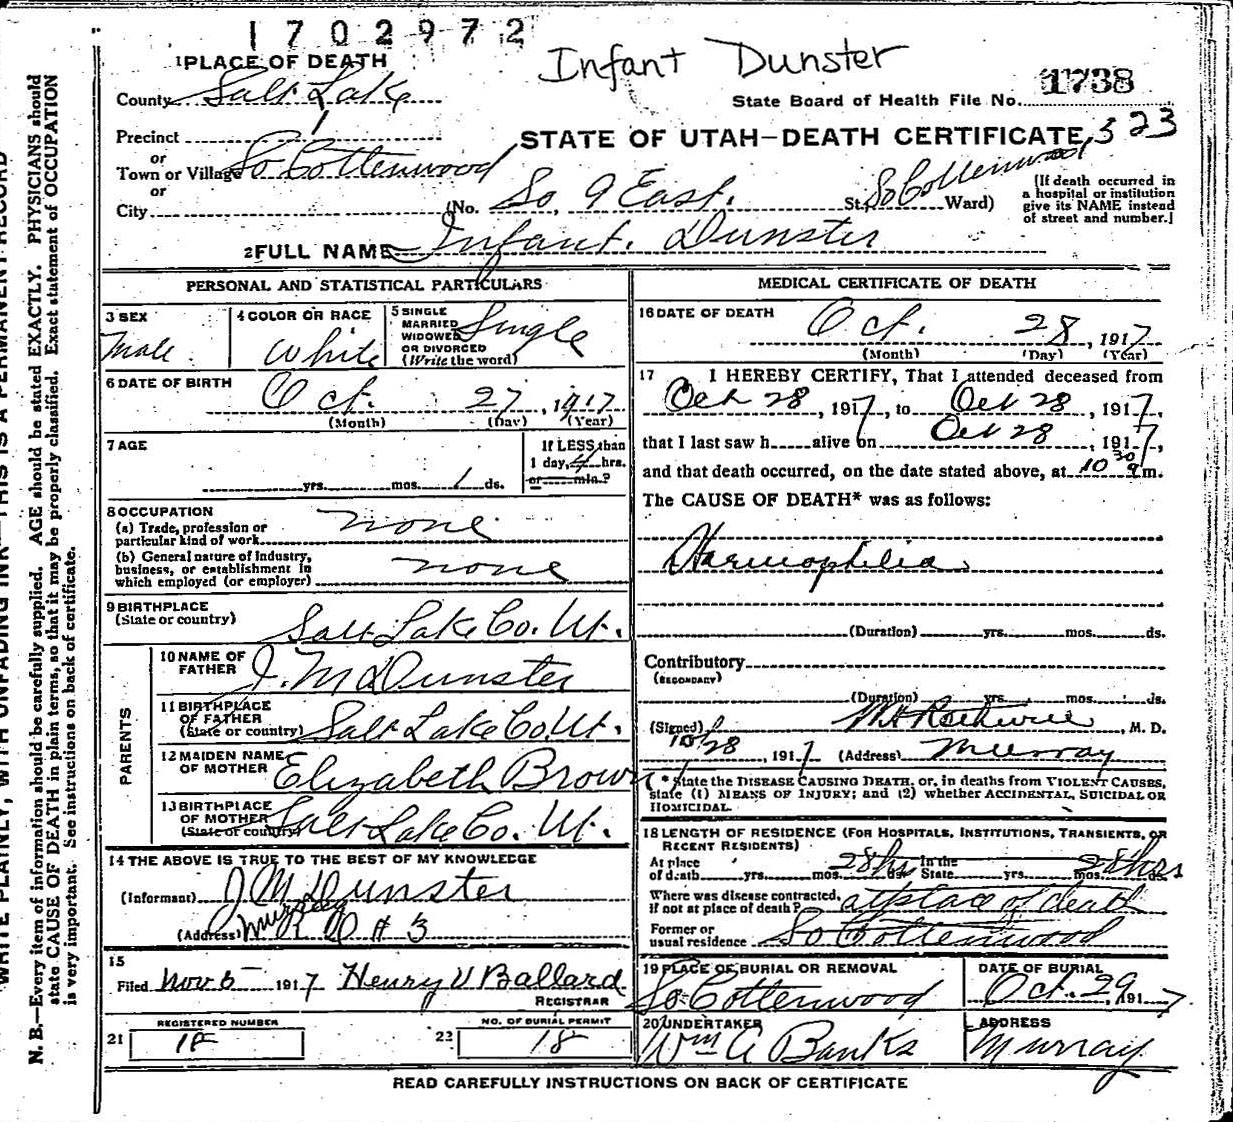 1702972
Infant Dunster
1 PLACE OF DEATH
County Salt Lake
State Board of Health File No. 1738
Precinct 1
STATE OF UTAH—DEATH CERTIFICATE 323
or
Town or Village So Cottenwood
or
City (No. So 9 East. St. So Cottenwood Ward)
[If death occurred in
a hospital or institution
give its NAME instead
of street and number.]
2 FULL NAME Infant. Dunster
PERSONAL AND STATISTICAL PARTICULARS
3 SEX
Male
4 COLOR OR RACE
White
5 SINGLE
MARRIED
WIDOWED
OR DIVORCED
(Write the word)
Single
6 DATE OF BIRTH
Oct. 27, 1917
(Month) (Day) (Year)
7 AGE
yrs. mos. 1 ds.
If LESS than
1 day, 4 hrs.
or min.?
8 OCCUPATION
(a) Trade, profession or
particular kind of work none
(b) General nature of industry,
business, or establishment in
which employed (or employer) none
9 BIRTHPLACE
(State or country)
Salt Lake Co. Ut.
PARENTS
10 NAME OF
FATHER
J. M Dunster
11 BIRTHPLACE
OF FATHER
(State or country) Salt Lake Co. Ut.
12 MAIDEN NAME
OF MOTHER
Elizabeth Brown
13 BIRTHPLACE
OF MOTHER
(State or country) Salt Lake Co. Ut.
14 THE ABOVE IS TRUE TO THE BEST OF MY KNOWLEDGE
(Informant) J M Dunster
(Address) Murray # 3
15
Filed Nov 5 1917 Henry V Ballard
REGISTRAR
REGISTERED NUMBER
21 18
NO. OF BURIAL PERMIT
22 18
MEDICAL CERTIFICATE OF DEATH
16 DATE OF DEATH
Oct. 28, 1917
(Month) (Day) (Year)
17 I HEREBY CERTIFY, That I attended deceased from
Oct 28, 1917, to Oct 28, 1917,
that I last saw h alive on Oct 28, 1917,
and that death occurred, on the date stated above, at 10 30 a m.
The CAUSE OF DEATH* was as follows:
Haemophilia
(Duration) yrs. mos. ds.
Contributory
(SECONDARY)
(Duration) yrs. mos. ds.
(Signed) M. D.
10/28, 1917 (Address) Murray
* State the DISEASE CAUSING DEATH, or, in deaths from VIOLENT CAUSES,
state (1) MEANS OF INJURY; and (2) whether ACCIDENTAL, SUICIDAL OR
HOMICIDAL.
18 LENGTH OF RESIDENCE (FOR HOSPITALS, INSTITUTIONS, TRANSIENTS, OR
RECENT RESIDENTS)
At place
of death yrs. mos. 28 hrs ds. In the
State yrs. mos. 28 hrs ds.
Where was disease contracted,
if not at place of death? at place of death
Former or
usual residence So Cottenwood
19 PLACE OF BURIAL OR REMOVAL
So Cottenwood
DATE OF BURIAL
Oct. 29, 1917
20 UNDERTAKER
Wm A Banks
ADDRESS
Murray
READ CAREFULLY INSTRUCTIONS ON BACK OF CERTIFICATE
WRITE PLAINLY, WITH UNFADING INK—THIS IS A PERMANENT RECORD
N. B.—Every item of information should be carefully supplied. AGE should be stated EXACTLY. PHYSICIANS should
state CAUSE OF DEATH in plain terms, so that it may be properly classified. Exact statement of OCCUPATION
is very important. See instructions on back of certificate.